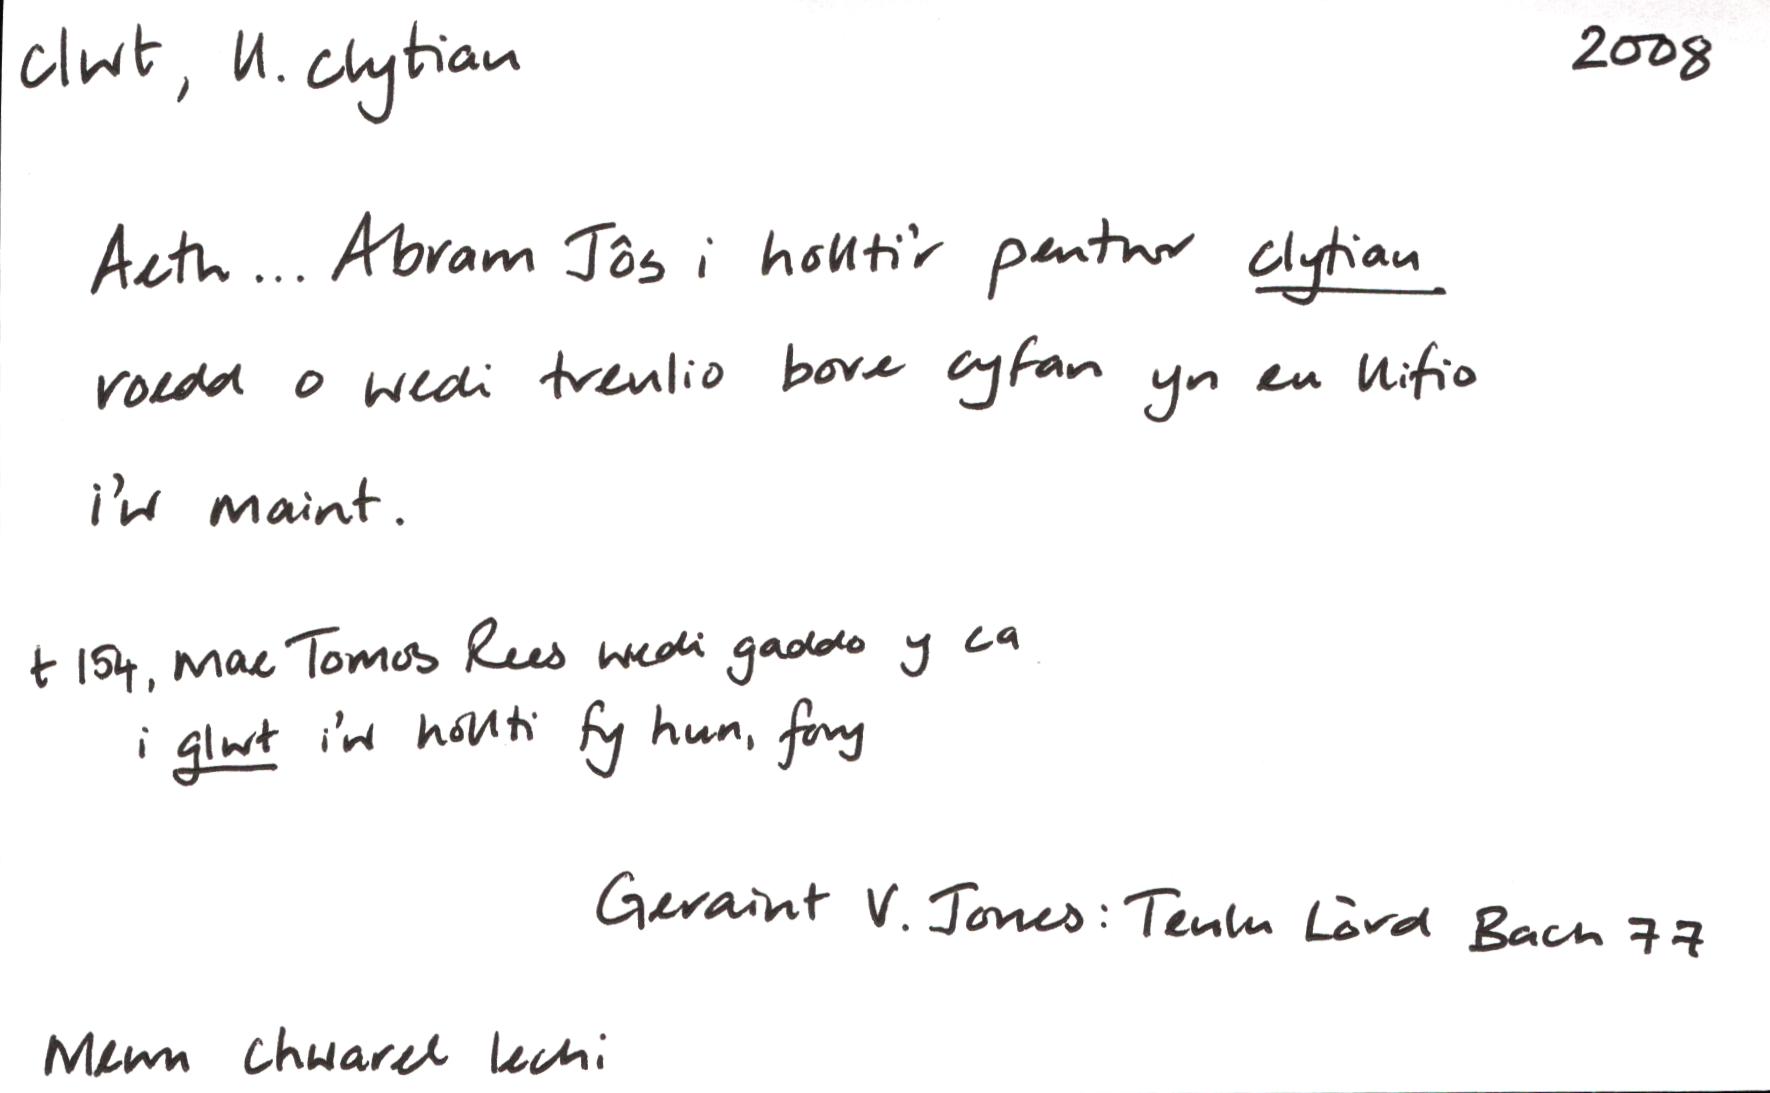 clwt, ll. clytian 2008
Aeth... Abram Jôs i hollti'r pentwr clytian
roedd o wedi treulio bore cyfan yn eu llifio
i'w maint.
t 154, mae Tomos Rees wedi gaddo y ca
i glwt i'w hollti fy hun, fory
Geraint V. Jones: Teulu Lòrd Bach 77
Mewn chwarel lechi